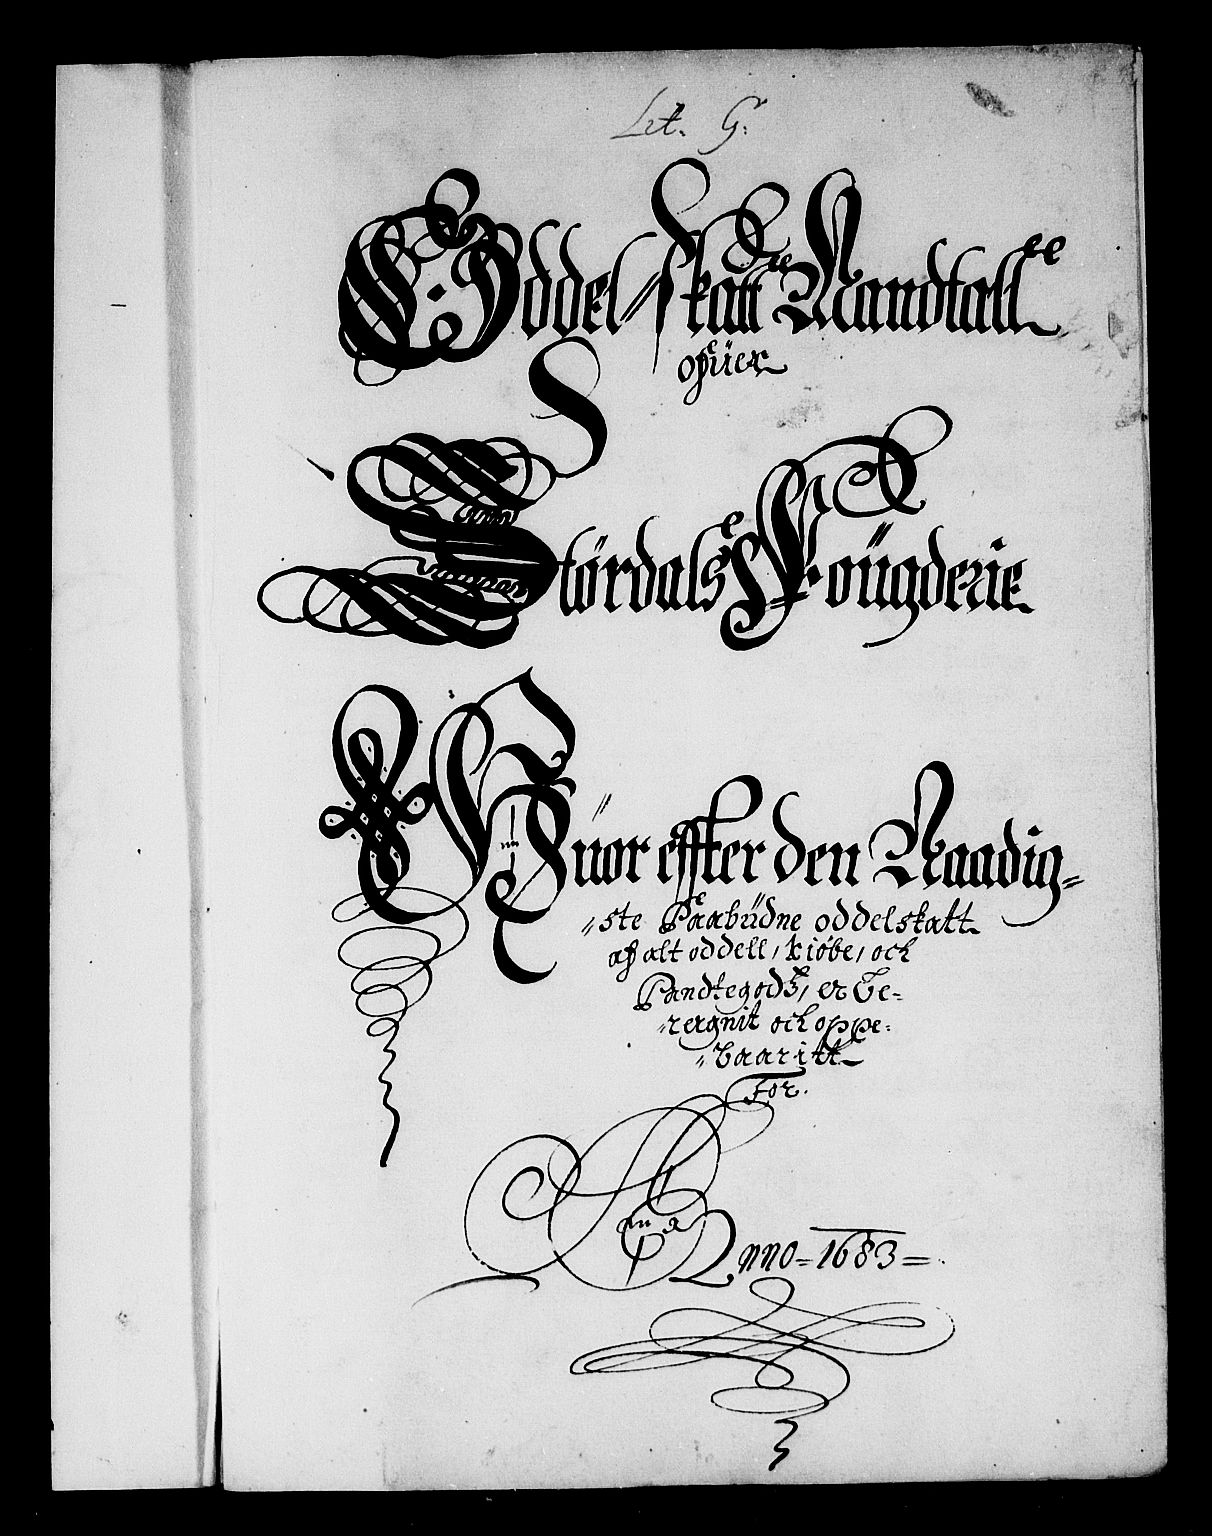 Lit. G:
Oddel-skatte Mandtall
ofüer
Størdals Fougderie
Huor effter den Naadig-
ste Paabüdne oddelskatt
af alt oddell, kiøbe, och
Pandtegodtz, er be-
reignit och oppe-
baaritt
For.
Anno-1683-